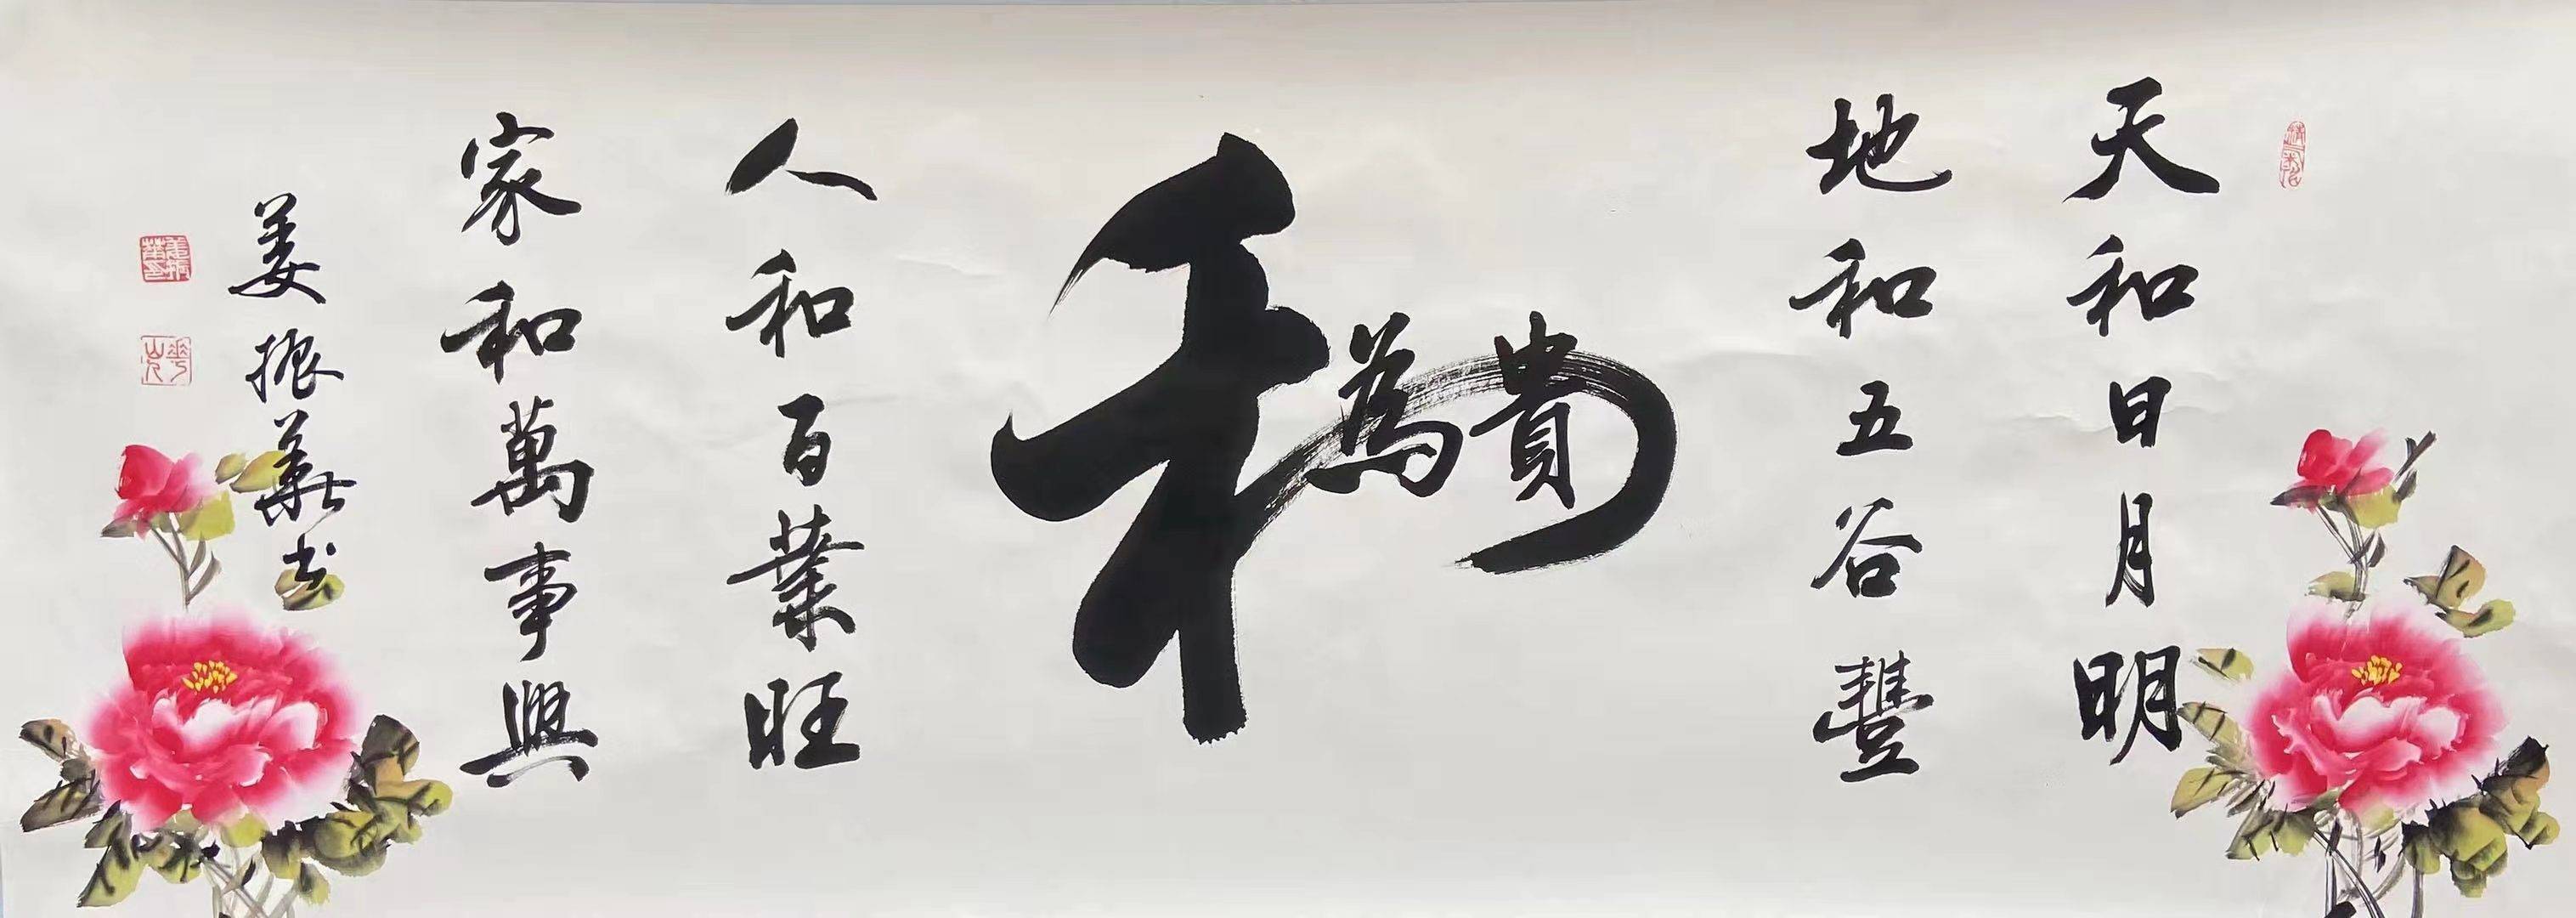 天和日月明
地和五谷豐
和為貴
人和百業旺
家和萬事興
姜振華书
姜振華印